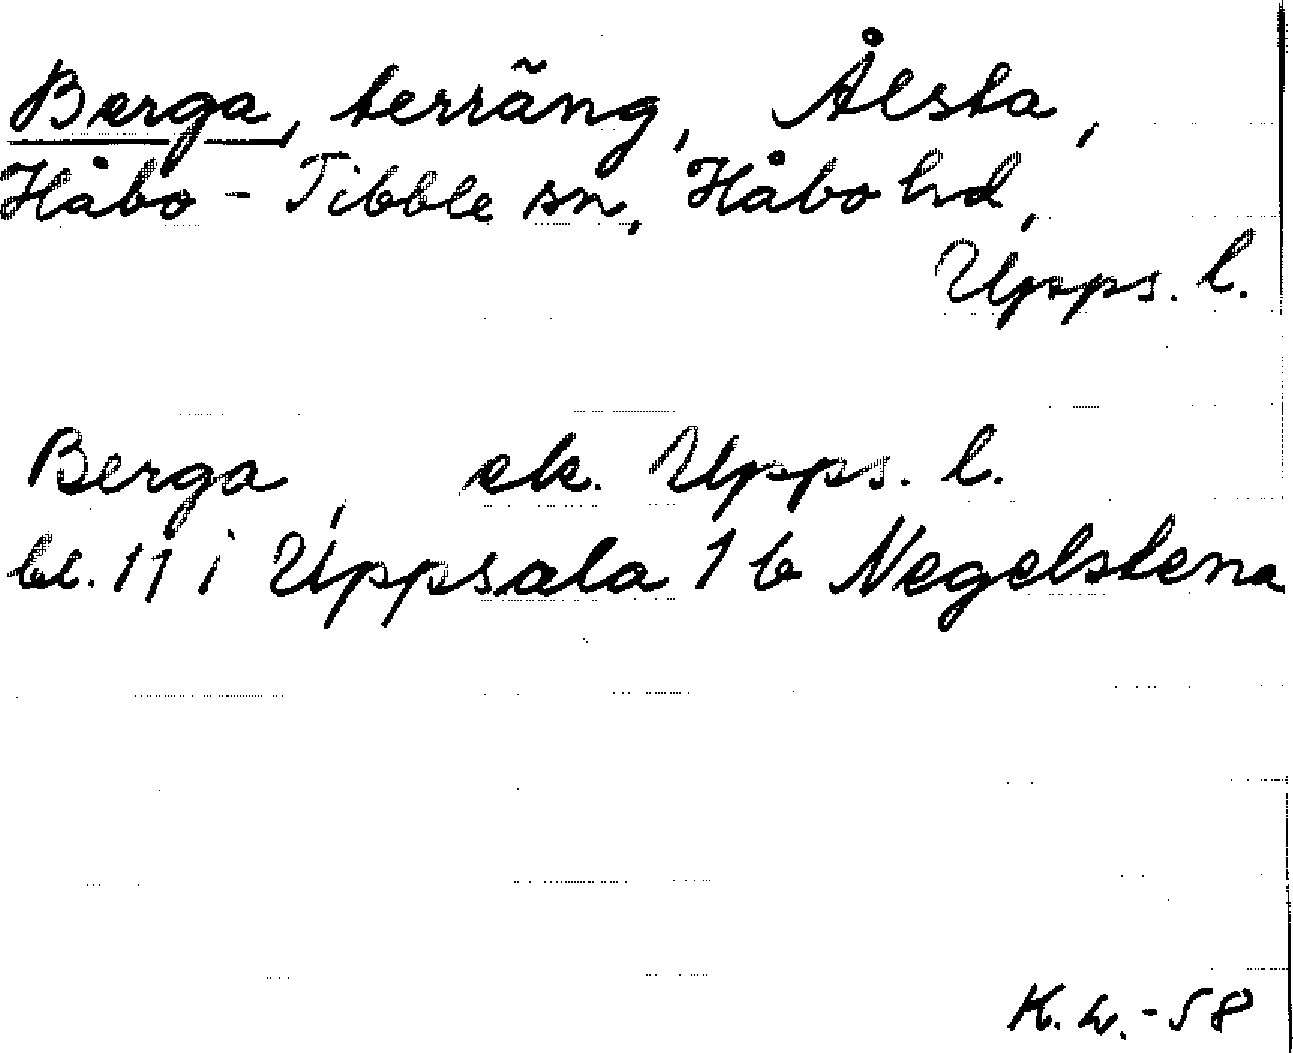 Berga, terräng, Ålsta,
Håbo-Tibble sn, Håbo hd,
Upps. l.
Berga, ek. Upps. l.
bl. 11 i Uppsala 1 b Negelstena
K. L. -58